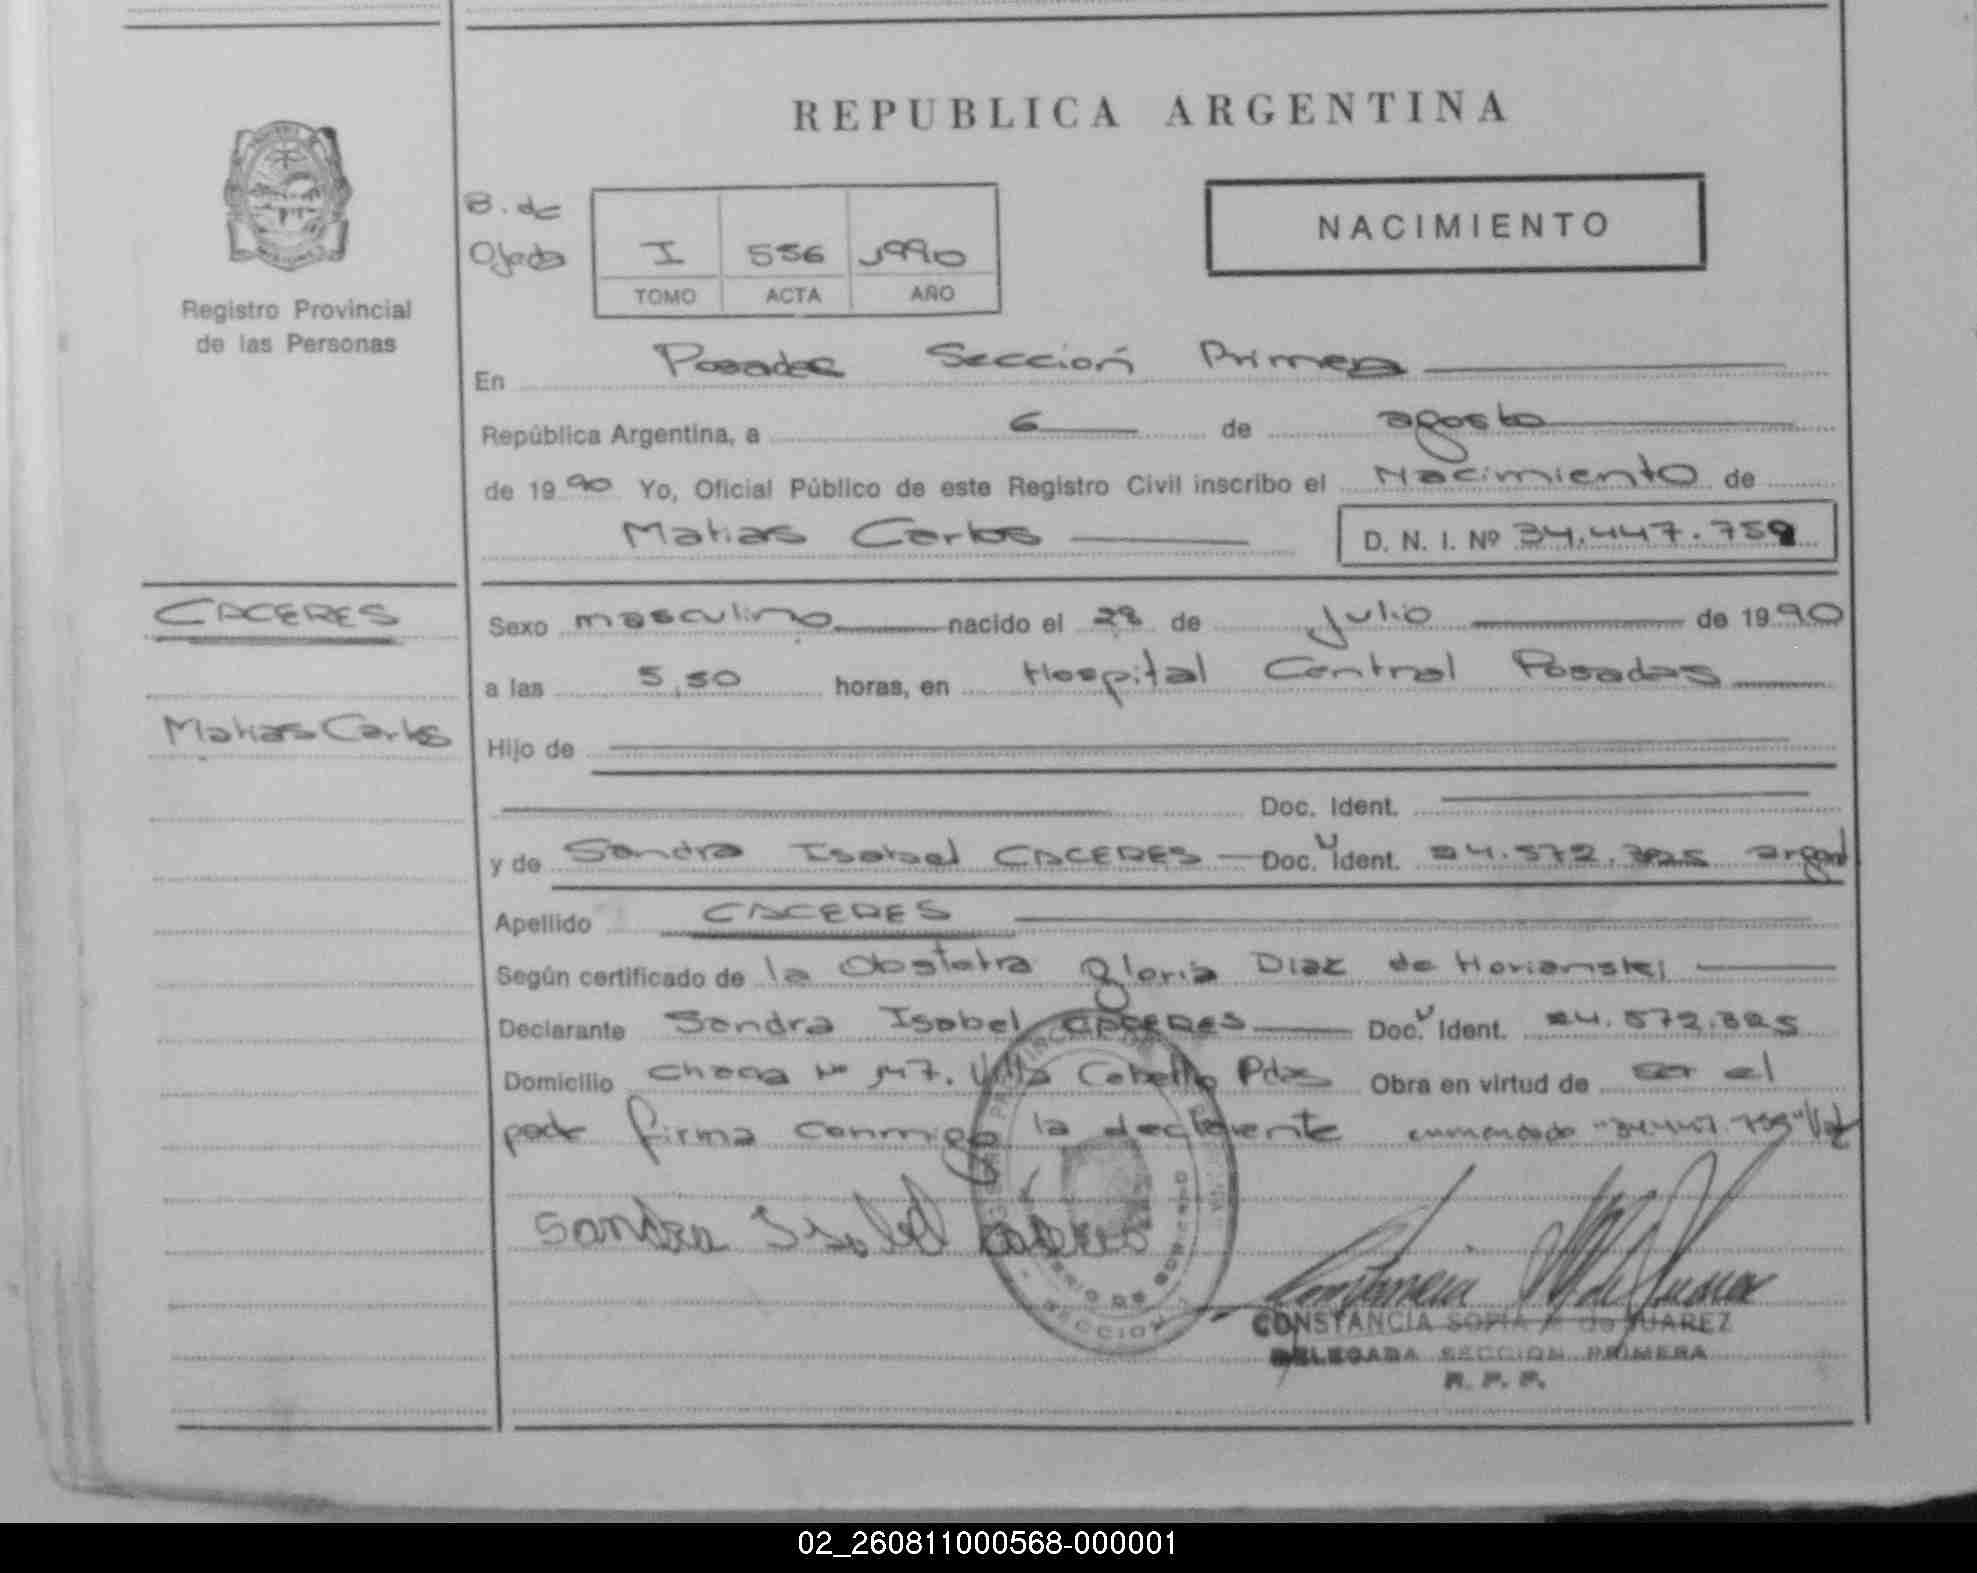 REPUBLICA ARGENTINA
NACIMIENTO
B. de
Ojeda
I 556 1990
TOMO ACTA AÑO
Registro Provincial
de las Personas
En Posadas Sección Primera
República Argentina, a 6 de agosto
de 1990 Yo, Oficial Público de este Registro Civil inscribo el Nacimiento de
Matias Carlos D. N. I. Nº 34.447.759
CACERES
Sexo masculino nacido el 28 de Julio de 1990
a las 5,50 horas, en Hospital Central Posadas
Matias Carlos
Hijo de
Doc. Ident.
y de Sandra Isabel CACERES Doc. Ident. 24.572.325 argent
Apellido CACERES
Según certificado de la Obstetra Gloria Diaz de
Declarante Sandra Isabel CACERES Doc. Ident. 24.572.325
Domicilio Chacra Nº 147. Villa Cabello Pdas Obra en virtud de ser el
firma conmigo la declarante enmendado "34.447.759" Vale
Sandra Isabel Caceres
CONSTANCIA SOFIA de JUAREZ
DELEGADA SECCION PRIMERA
R. P. P.
02_260811000568-000001